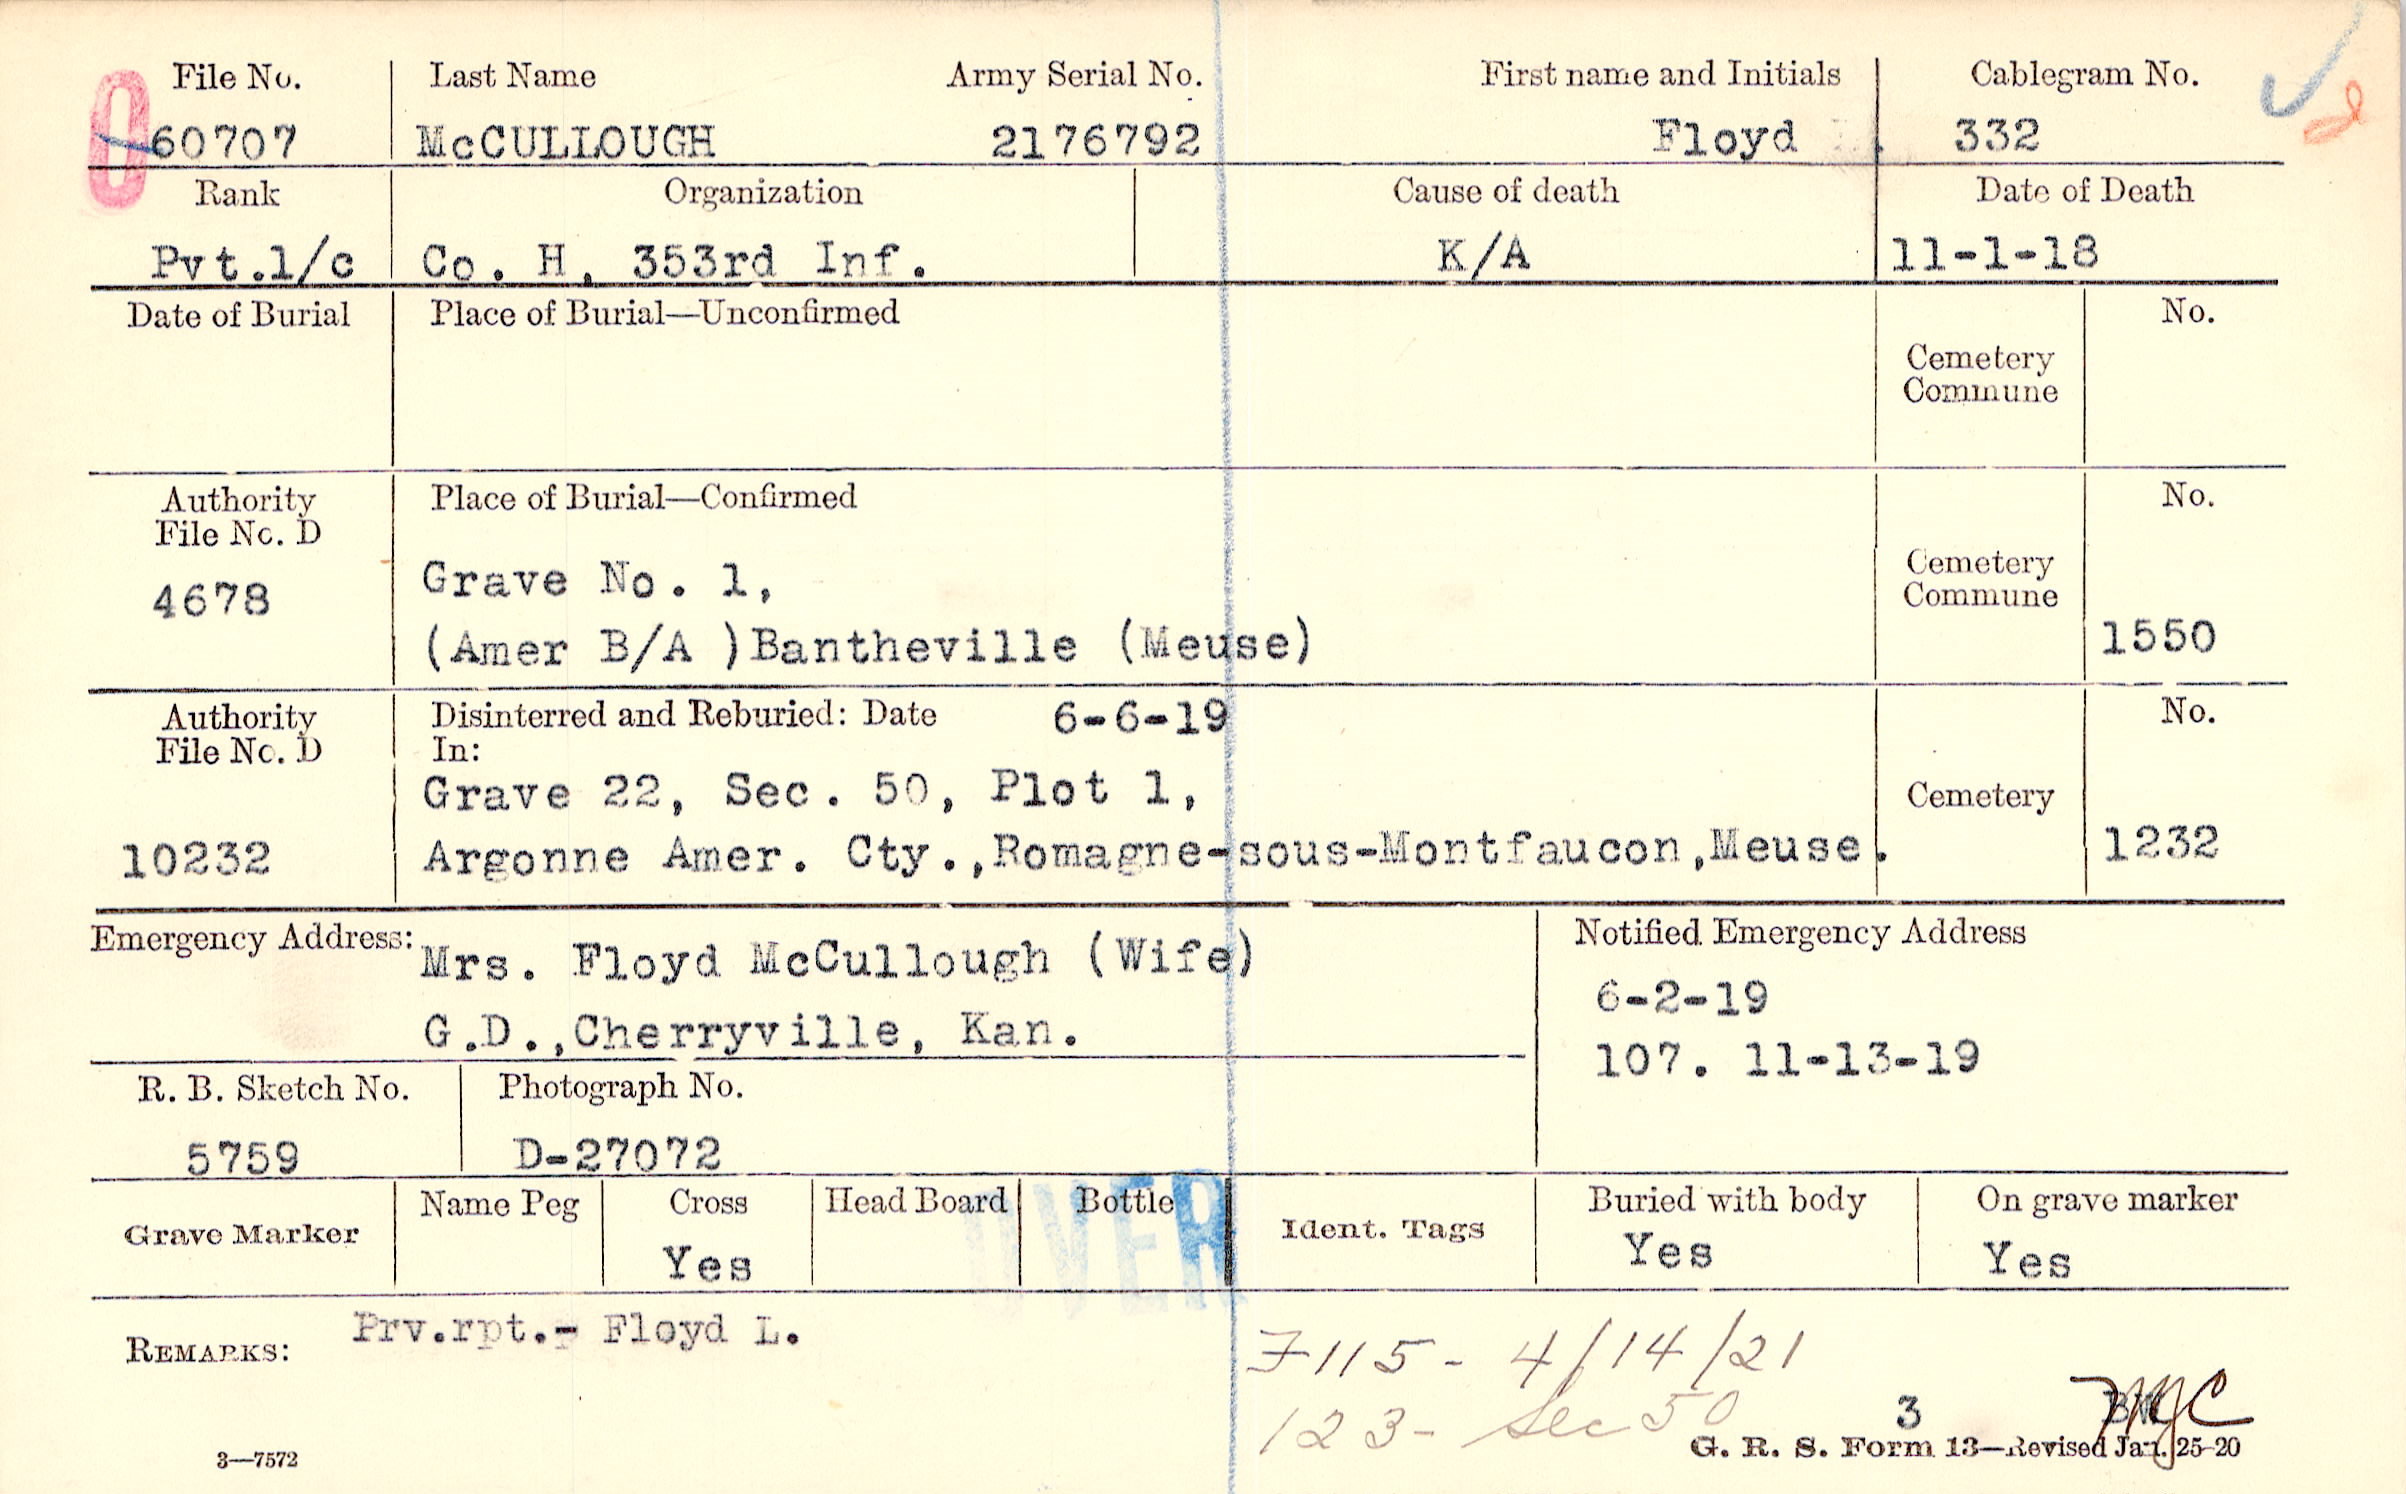 File No. Last Name Army Serial No. First name and Initials Cablegram No.
60707 McCULLOUGH 2176792 Floyd 332
Rank Organization Cause of death Date of Death
Pvt.1/c Co. H, 353rd Inf. K/A 11-1-18
Date of Burial Place of Burial—Unconfirmed No.
Cemetery
Commune
Authority Place of Burial—Confirmed No.
File No. D
Cemetery
Commune
4678 Grave No. 1,
(Amer B/A )Bantheville (Meuse) 1550
Authority Disinterred and Reburied: Date 6-6-19 No.
File No. D In:
Grave 22, Sec. 50, Plot 1, Cemetery
10232 Argonne Amer. Cty.,Romagne-sous-Montfaucon,Meuse. 1232
Emergency Address: Mrs. Floyd McCullough (Wife) Notified Emergency Address
6-2-19
G.D.,Cherryville, Kan.
107. 11-13-19
R. B. Sketch No. Photograph No.
5759 D-27072
Grave Marker Name Peg Cross Head Board Bottle Ident. Tags Buried with body On grave marker
Yes Yes Yes
OVER
REMARKS: Prv.rpt.- Floyd L.
F115 - 4/14/21
123 - Sec 50
3
3—7572 G. R. S. Form 13—Revised Jan. 25-20